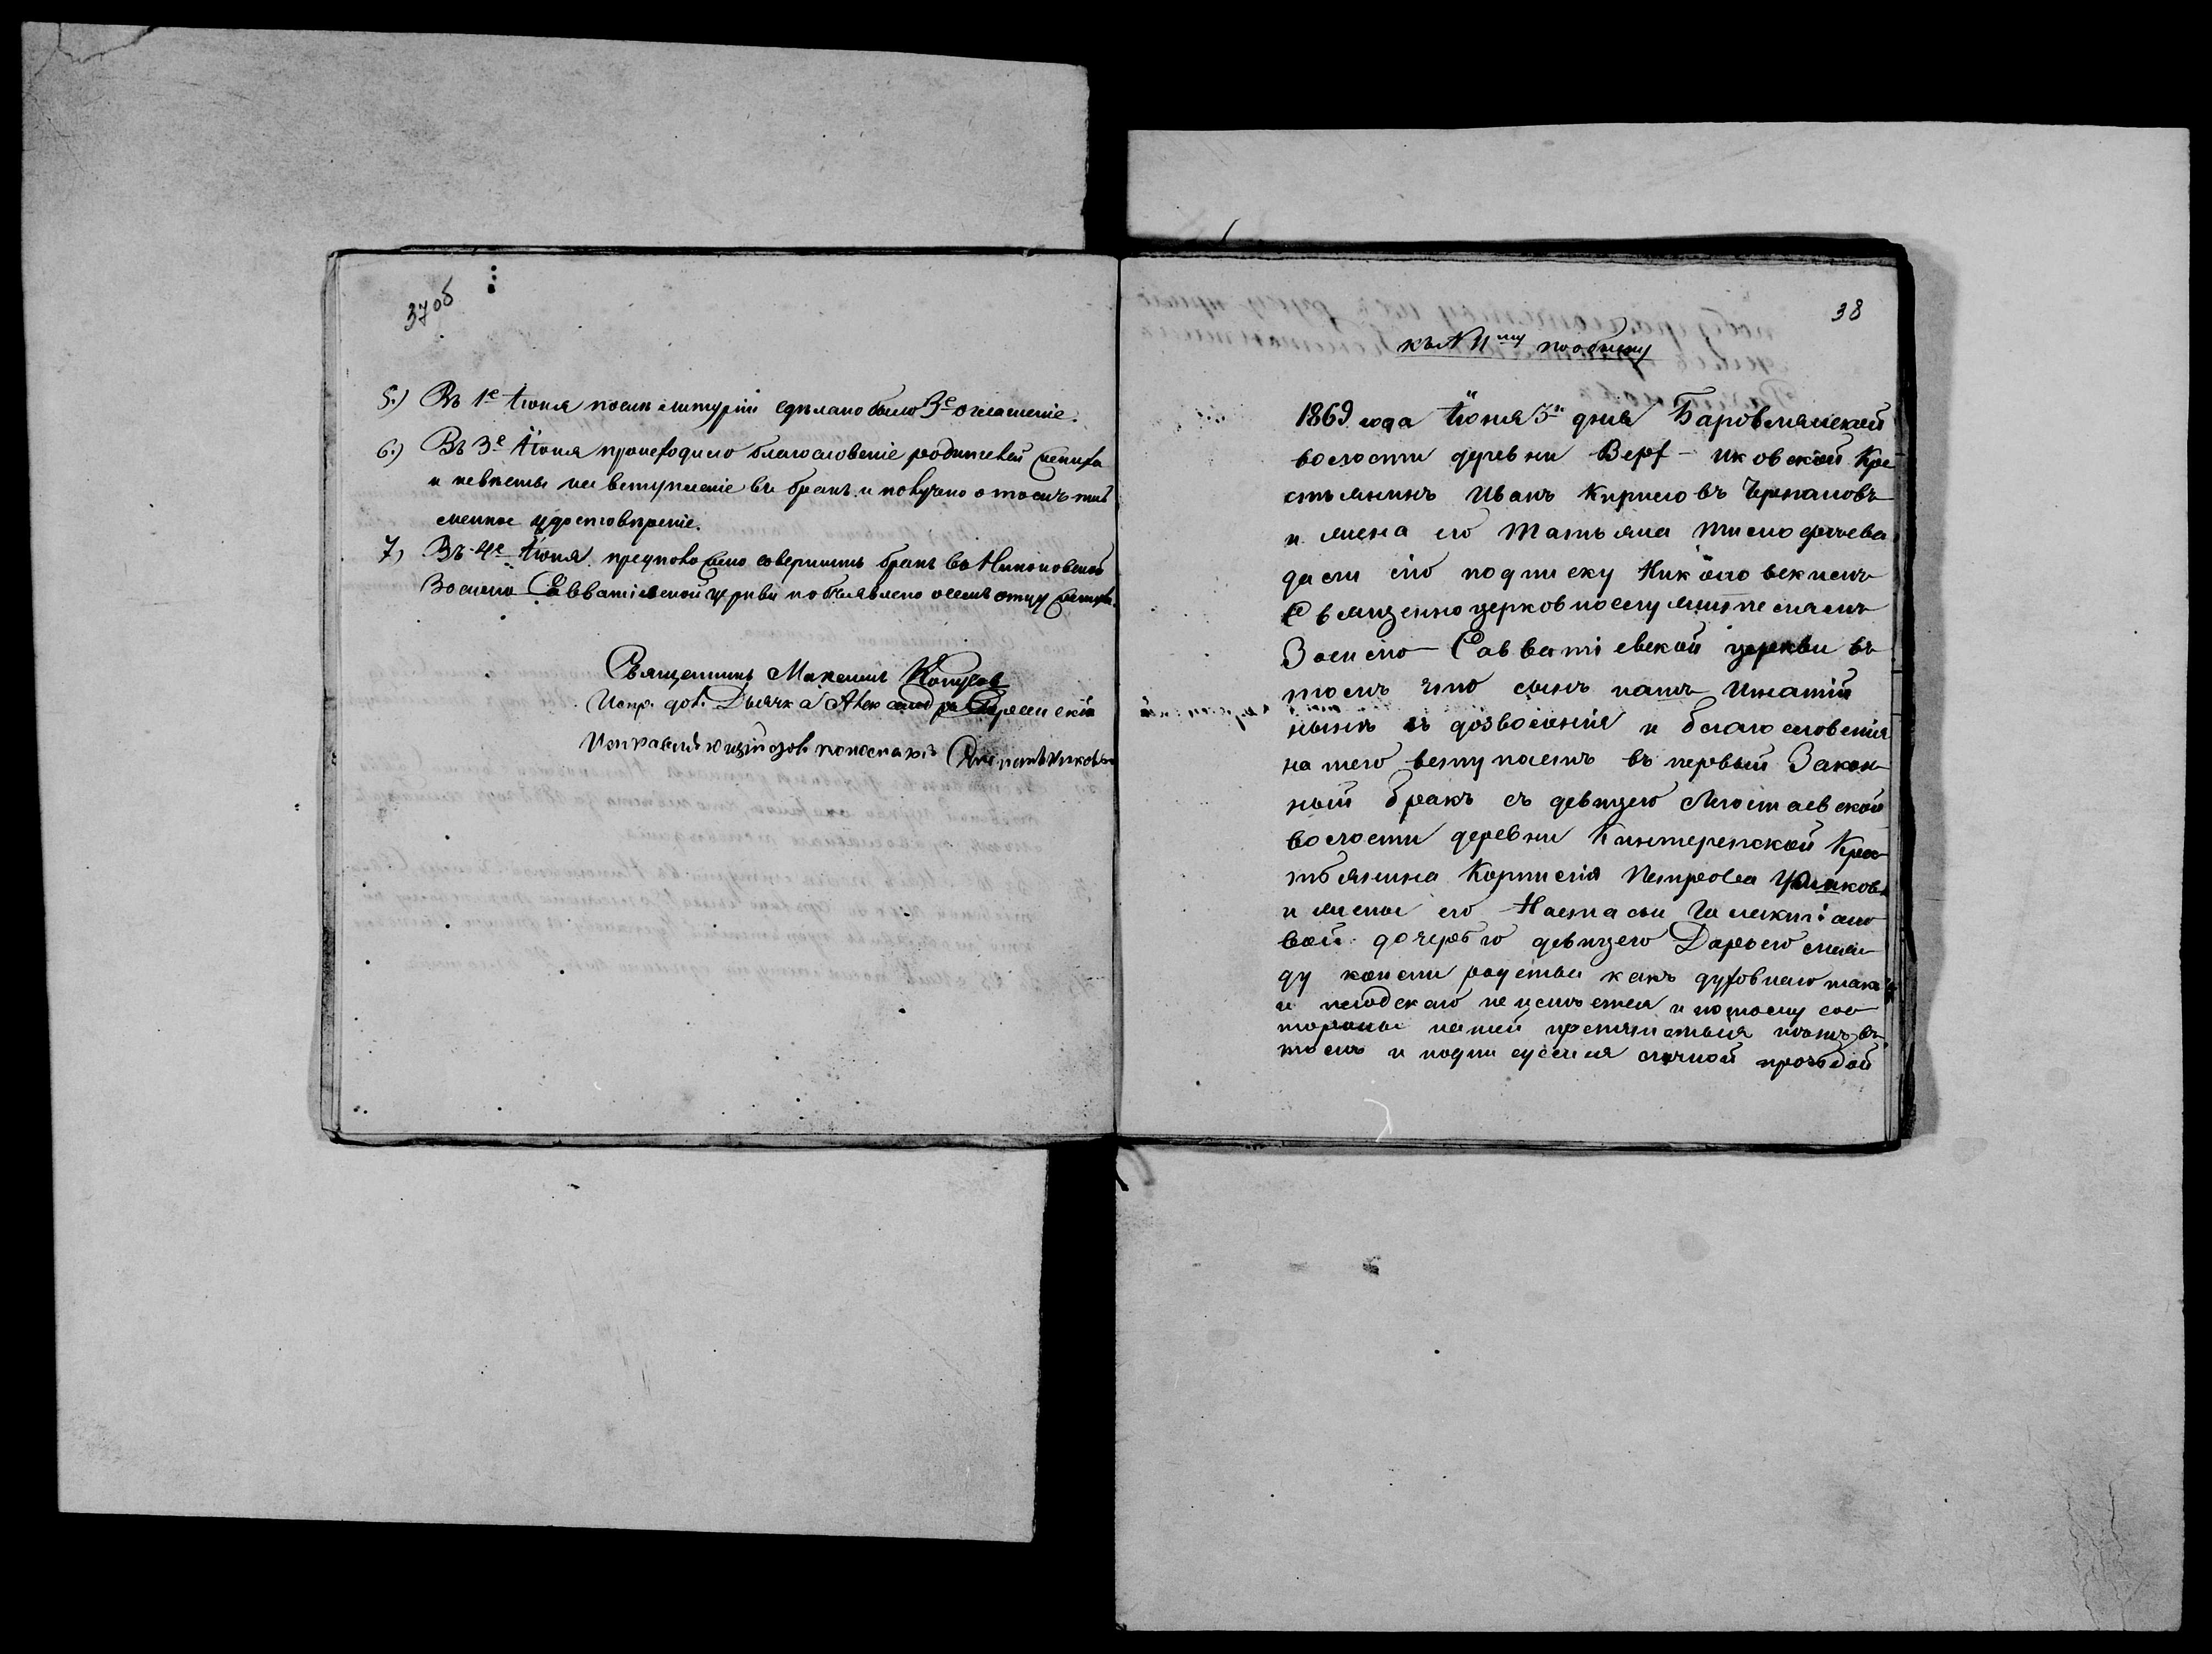 37об
5.) Въ 1е Іюня послѣ литургіи сдѣлано было 3е оглашеніе.
6.) Въ 3е Іюня происходило благословеніе родителей жениха
и невѣсты на вступленіе въ бракъ и получено о томъ пись
менное удостовѣреніе.
7) Въ 4е Іюня предположено совершить бракъ въ
Зосимо Савватіевской церкви и объявлено о семъ отцу жениха.
Священникъ Максимъ
Испр. дол. Дьячка Александръ
Исправляющій дол. пономаря
38
къ № 11му пообыску
1869 года Іюня 3го дня Баровлянской
волости деревни Верх-Иковской Кре
стьянинъ Иванъ Кириловъ Черпановъ
и жена его Татьяна Тимофеева
дали сію подписку
Священноцерковнослужителямъ
Зосимо-Савватіевской церкви въ
томъ что сынъ нашъ Игнатій
нынѣ съ дозволенія и благословенія
нашего вступаетъ въ первый Закон
ный бракъ съ девицею
волости деревни Крес
тьянина Корнилія Петрова
и жены его Настасьи
вой дочерью девицею Дарьею меж
ду коими родства какъ духовнаго такъ
и плодскаго не имѣется и потому со
тороны нашей препятствія нѣтъ въ
томъ и подписуемся личной прозьбой